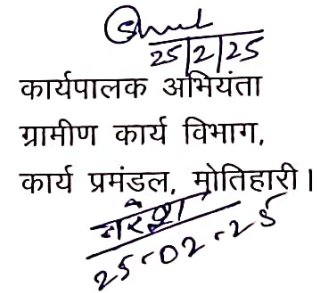 25/2/25
कार्यपालक अभियंता
ग्रामीण कार्य विभाग,
कार्य प्रमंडल, मोतिहारी।
नरेश
25-02-25